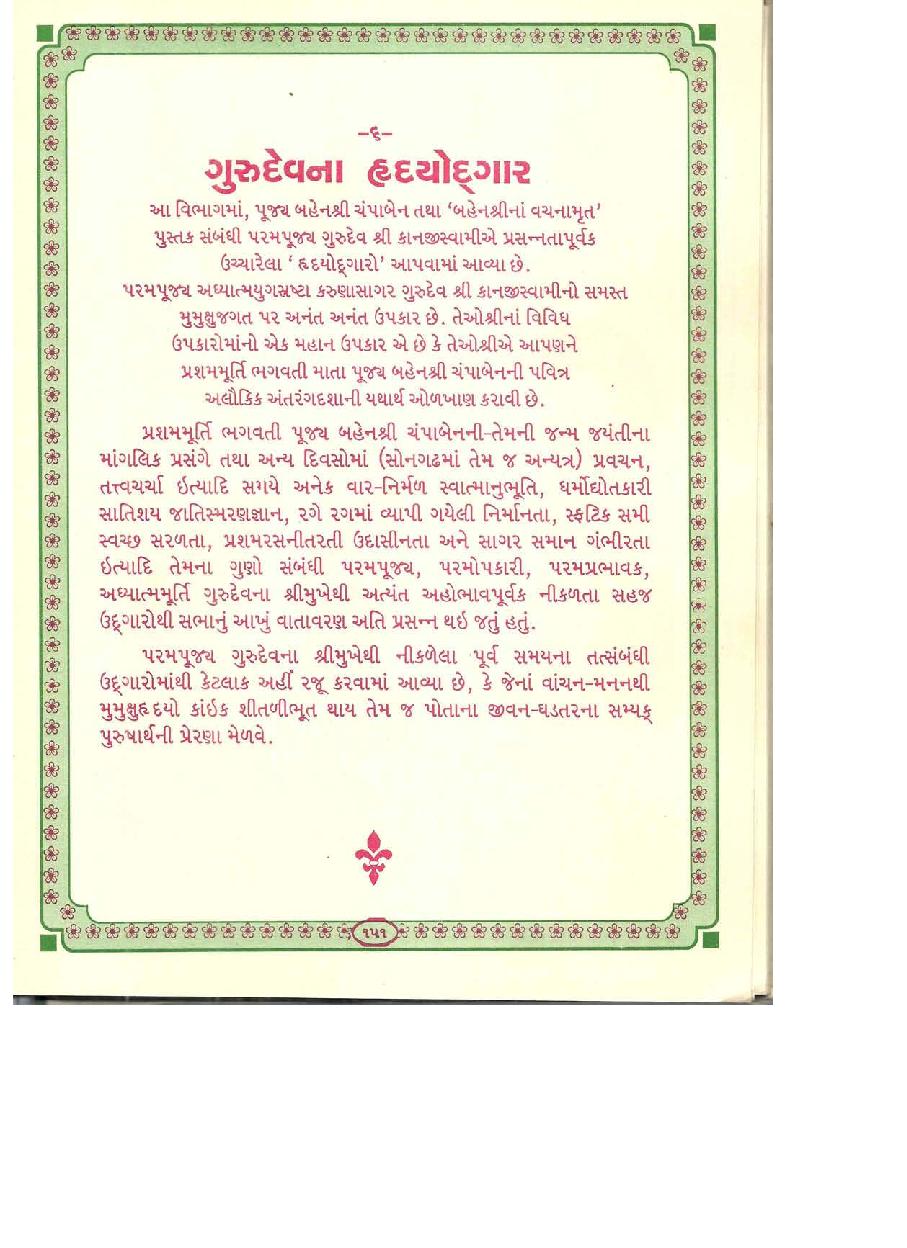 –૬–
ગુરુદેવના હૃદયોદ્‌ગાર
આ વિભાગમાં, પૂજ્ય બહેનશ્રી ચંપાબેન તથા ‘બહેનશ્રીનાં વચનામૃત’
પુસ્તક સંબંધી પરમપૂજ્ય ગુરુદેવ શ્રી કાનજીસ્વામીએ પ્રસન્નતાપૂર્વક
ઉચ્ચારેલા ‘ હૃદયોદ્‌ગારો’ આપવામાં આવ્યા છે.
પરમપૂજ્ય અધ્યાત્મયુગસ્રષ્ટા કરુણાસાગર ગુરુદેવ શ્રી કાનજીસ્વામીનો સમસ્ત
મુમુક્ષુજગત પર અનંત અનંત ઉપકાર છે. તેઓશ્રીનાં વિવિધ
ઉપકારોમાંનો એક મહાન ઉપકાર એ છે કે તેઓશ્રીએ આપણને
પ્રશમમૂર્તિ ભગવતી માતા પૂજ્ય બહેનશ્રી ચંપાબેનની પવિત્ર
અલૌકિક અંતરંગદશાની યથાર્થ ઓળખાણ કરાવી છે.
પ્રશમમૂર્તિ ભગવતી પૂજ્ય બહેનશ્રી ચંપાબેનની-તેમની જન્મ જયંતીના
માંગલિક પ્રસંગે તથા અન્ય દિવસોમાં (સોનગઢમાં તેમ જ અન્યત્ર) પ્રવચન,
તત્ત્વચર્ચા ઇત્યાદિ સમયે અનેક વાર-નિર્મળ સ્વાત્માનુભૂતિ, ધર્મોદ્યોતકારી
સાતિશય જાતિસ્મરણજ્ઞાન, રગે રગમાં વ્યાપી ગયેલી નિર્માનતા, સ્ફટિક સમી
સ્વચ્છ સરળતા, પ્રશમરસનીતરતી ઉદાસીનતા અને સાગર સમાન ગંભીરતા
ઇત્યાદિ તેમના ગુણો સંબંધી પરમપૂજ્ય, પરમોપકારી, પરમપ્રભાવક,
અધ્યાત્મમૂર્તિ ગુરુદેવના શ્રીમુખેથી અત્યંત અહોભાવપૂર્વક નીકળતા સહજ
ઉદ્‌ગારોથી સભાનું આખું વાતાવરણ અતિ પ્રસન્ન થઇ જતું હતું.
પરમપૂજ્ય ગુરુદેવના શ્રીમુખેથી નીકળેલા પૂર્વ સમયના તત્સંબંધી
ઉદ્‌ગારોમાંથી કેટલાક અહીં રજૂ કરવામાં આવ્યા છે, કે જેનાં વાંચન-મનનથી
મુમુક્ષુહૃદયો કાંઇક શીતળીભૂત થાય તેમ જ પોતાના જીવન-ઘડતરના સમ્યક્
પુરુષાર્થની પ્રેરણા મેળવે.
૧૫૧